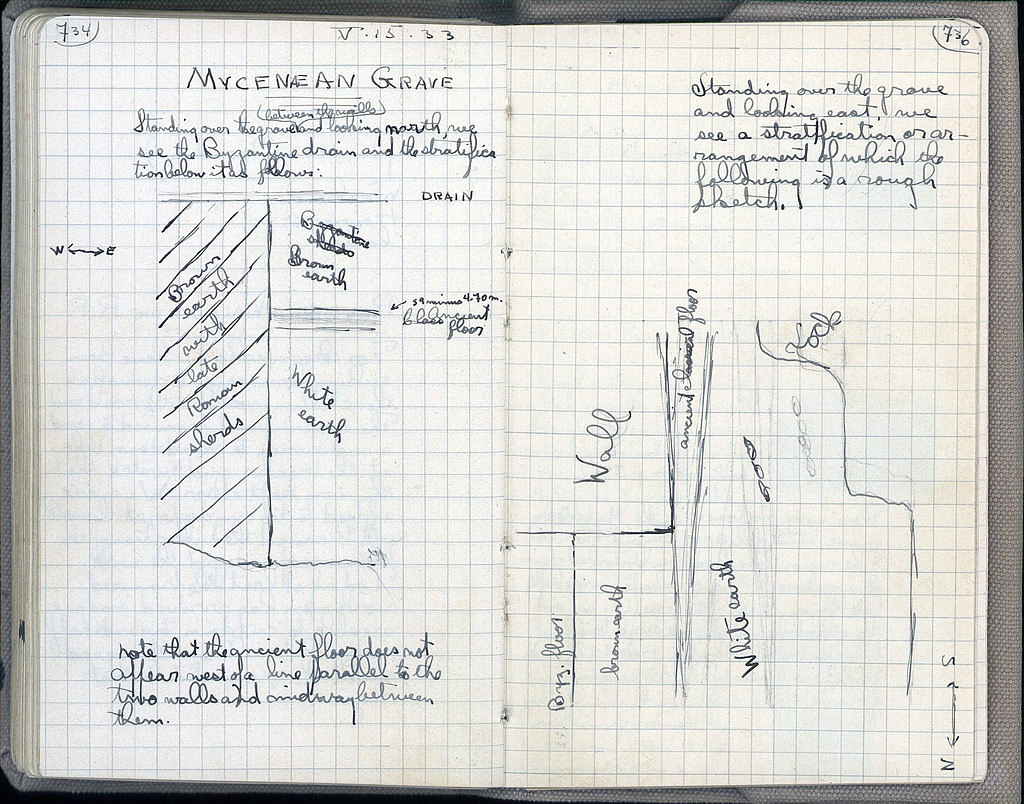 734
V·15·33
MYCENÆAN GRAVE
(between the walls)
Standing over the grave and looking north, we
see the Byzantine drain and the stratifica
tion below it as follows:
DRAIN
W ↔ E
Byzantine
sherds
Brown
earth
Brown
earth
with
late
Roman
sherds
59 minus 4.70 m.
ancient
floor
White
earth
note that the ancient floor does not
appear west of a line parallel to the
two walls and midway between
them.
736
Standing over the grave
and looking east, we
see a stratification or ar-
rangement of which the
following is a rough
sketch.
Wall
ancient classical floor
rock
Byz. floor
brown earth
White earth
N ↔ S